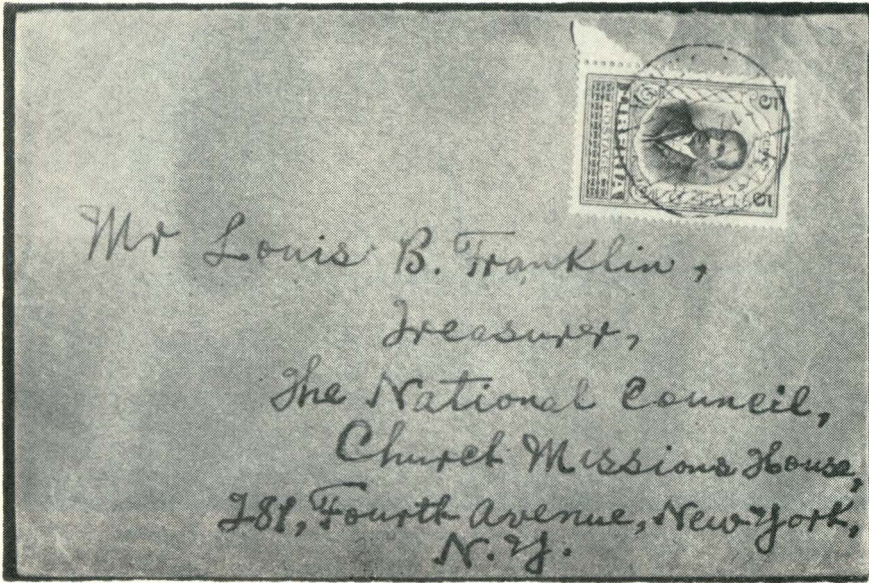 5
LIBERIA
POSTAGE
5
Mr Louis B. Franklin,
Treasurer,
The National Council,
Church Missions House,
281, Fourth Avenue, New York,
N.Y.